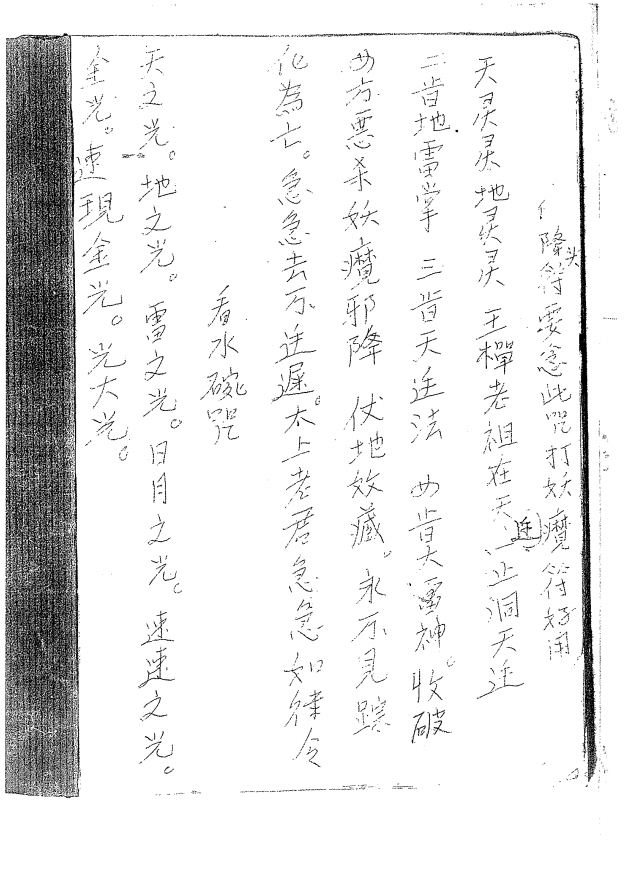 降头符要念此咒打妖魔符好用
天灵灵地灵灵 王樿老祖在天 止洞天迋
二肯地雷掌 三肯天迋法 四肯大雷神。收破
四方悪杀妖魔邪降 伏地效藏。永不見踪
化為亡。急急去不迋遲。太上老君急急如律令
看水碗咒
天之光。地之光。雷之光。日月之光。速速之光。
金光。速現金光。光大光。